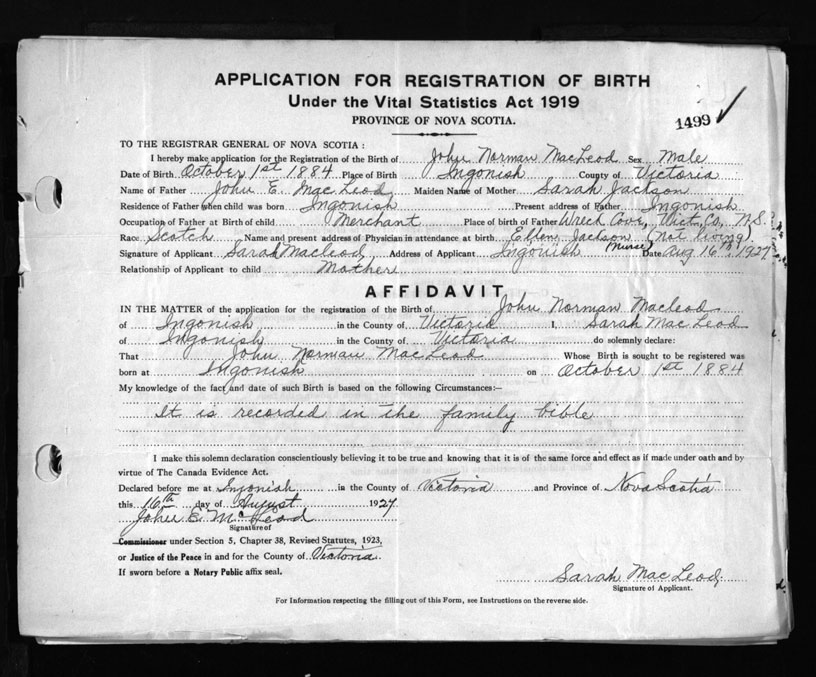 APPLICATION FOR REGISTRATION OF BIRTH
Under the Vital Statistics Act 1919
PROVINCE OF NOVA SCOTIA.
1499
TO THE REGISTRAR GENERAL OF NOVA SCOTIA:
I hereby make application for the Registration of the Birth of John Norman MacLeod Sex Male
Date of Birth October 1st 1884 Place of Birth Ingonish County of Victoria
Name of Father John E. MacLeod Maiden Name of Mother Sarah Jackson
Residence of Father when child was born Ingonish Present address of Father Ingonish
Occupation of Father at Birth of child Merchant Place of birth of Father Wreck Cove, Vict. Co, N.S.
Race Scotch Name and present address of Physician in attendance at birth Ellen Jackson (Not living)
(Nurse)
Signature of Applicant Sarah Macleod Address of Applicant Ingonish Date Aug 16th, 1927
Relationship of Applicant to child Mother
AFFIDAVIT
IN THE MATTER of the application for the registration of the Birth of John Norman Macleod
of Ingonish in the County of Victoria I, Sarah MacLeod
of Ingonish in the County of Victoria do solemnly declare:
That John Norman MacLeod Whose Birth is sought to be registered was
born at Ingonish on October 1st 1884
My knowledge of the fact and date of such Birth is based on the following Circumstances:—
It is recorded in the family bible
I make this solemn declaration conscientiously believing it to be true and knowing that it is of the same force and effect as if made under oath and by
virtue of The Canada Evidence Act.
Declared before me at Ingonish in the County of Victoria and Province of Nova Scotia
this 16th day of August 1927
John E. McLeod
Signature of
Commissioner under Section 5, Chapter 38, Revised Statutes, 1923,
or Justice of the Peace in and for the County of Victoria
If sworn before a Notary Public affix seal.
Sarah MacLeod
Signature of Applicant.
For Information respecting the filling out of this Form, see Instructions on the reverse side.